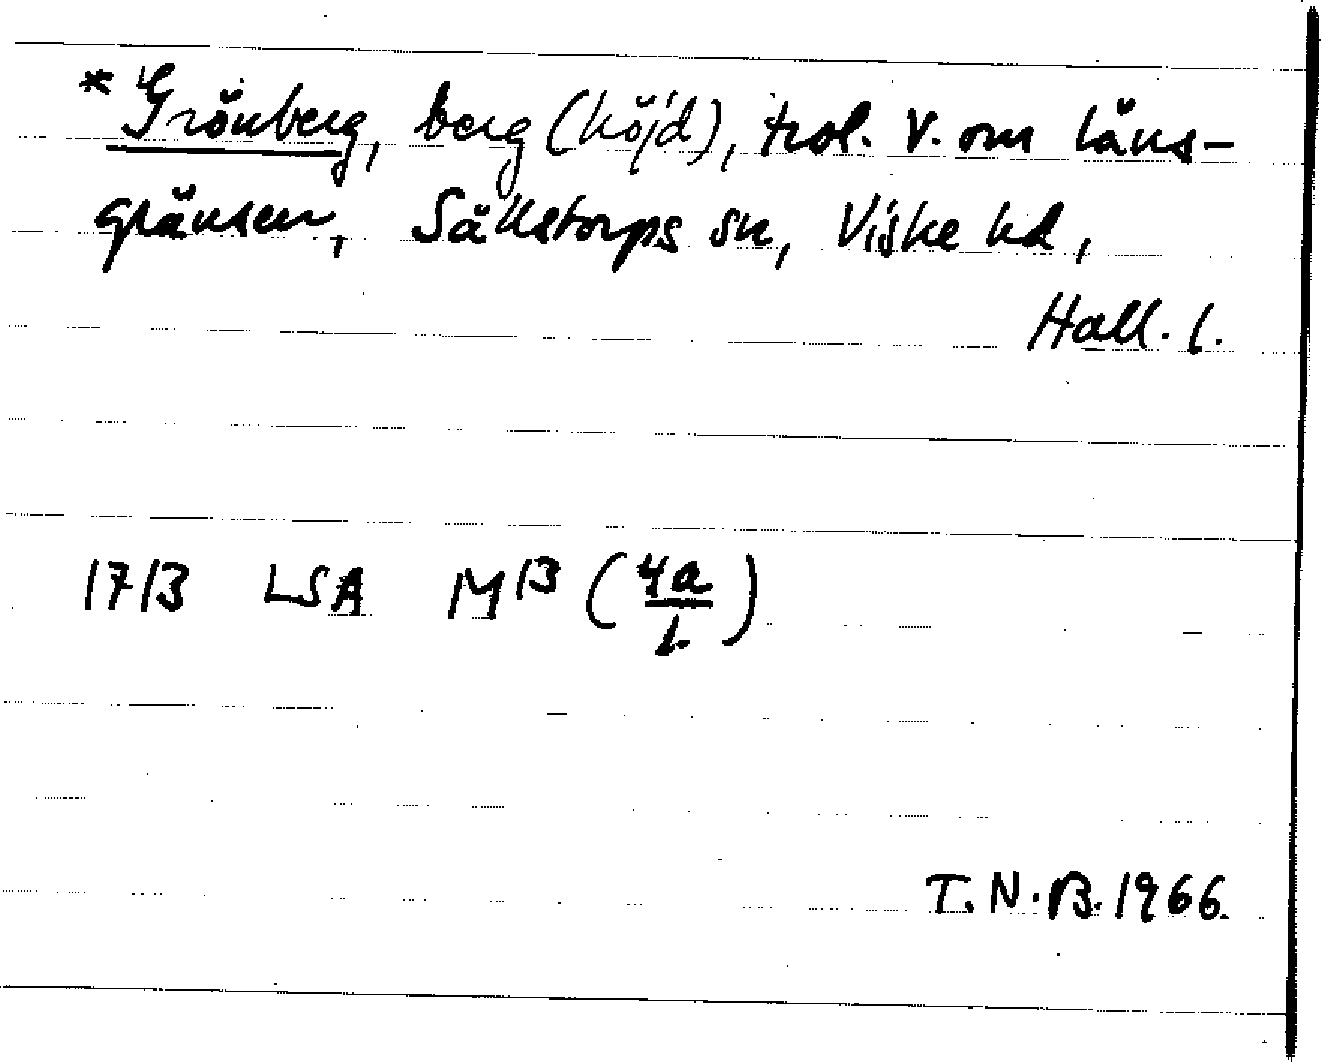 *Grönberg, berg (höjd), trol. V. om läns-
gränsen, Sällstorps sn, Viske hd,
Hall. l.
1713 LSA M13 (4a/1.)
T.N.B. 1966.